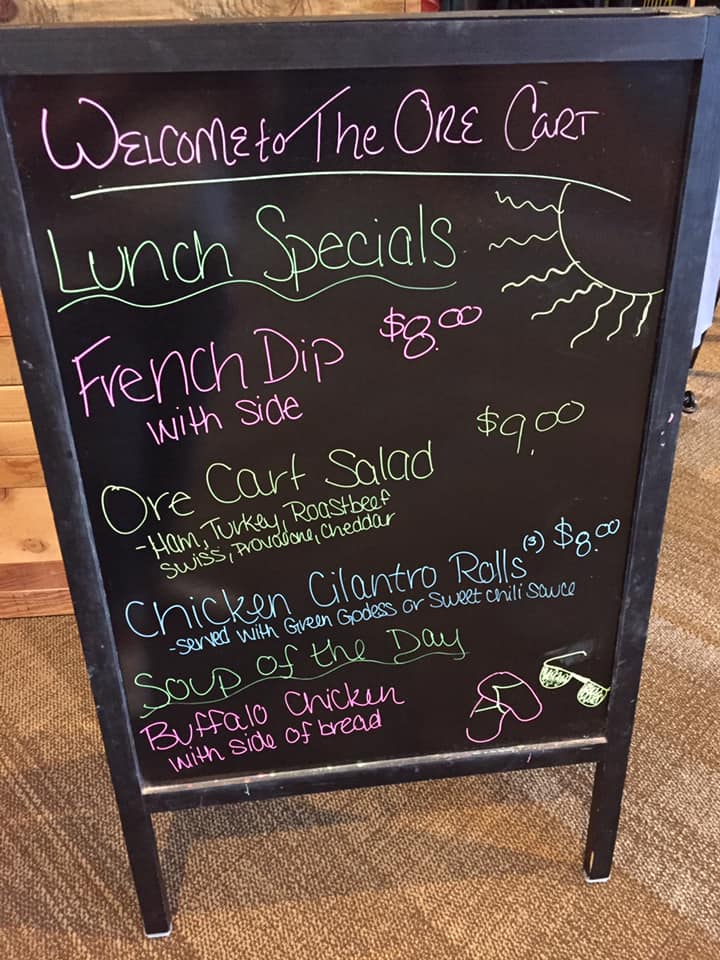 Welcome to The Ore Cart
Lunch Specials
French Dip $8.00
with side
Ore Cart Salad $9.00
-Ham, Turkey, Roastbeef
Swiss, Provolone, Cheddar
Chicken Cilantro Rolls (3) $8.00
-served with Green Godess or Sweet Chili Sauce
Soup of the Day
Buffalo Chicken
with side of bread